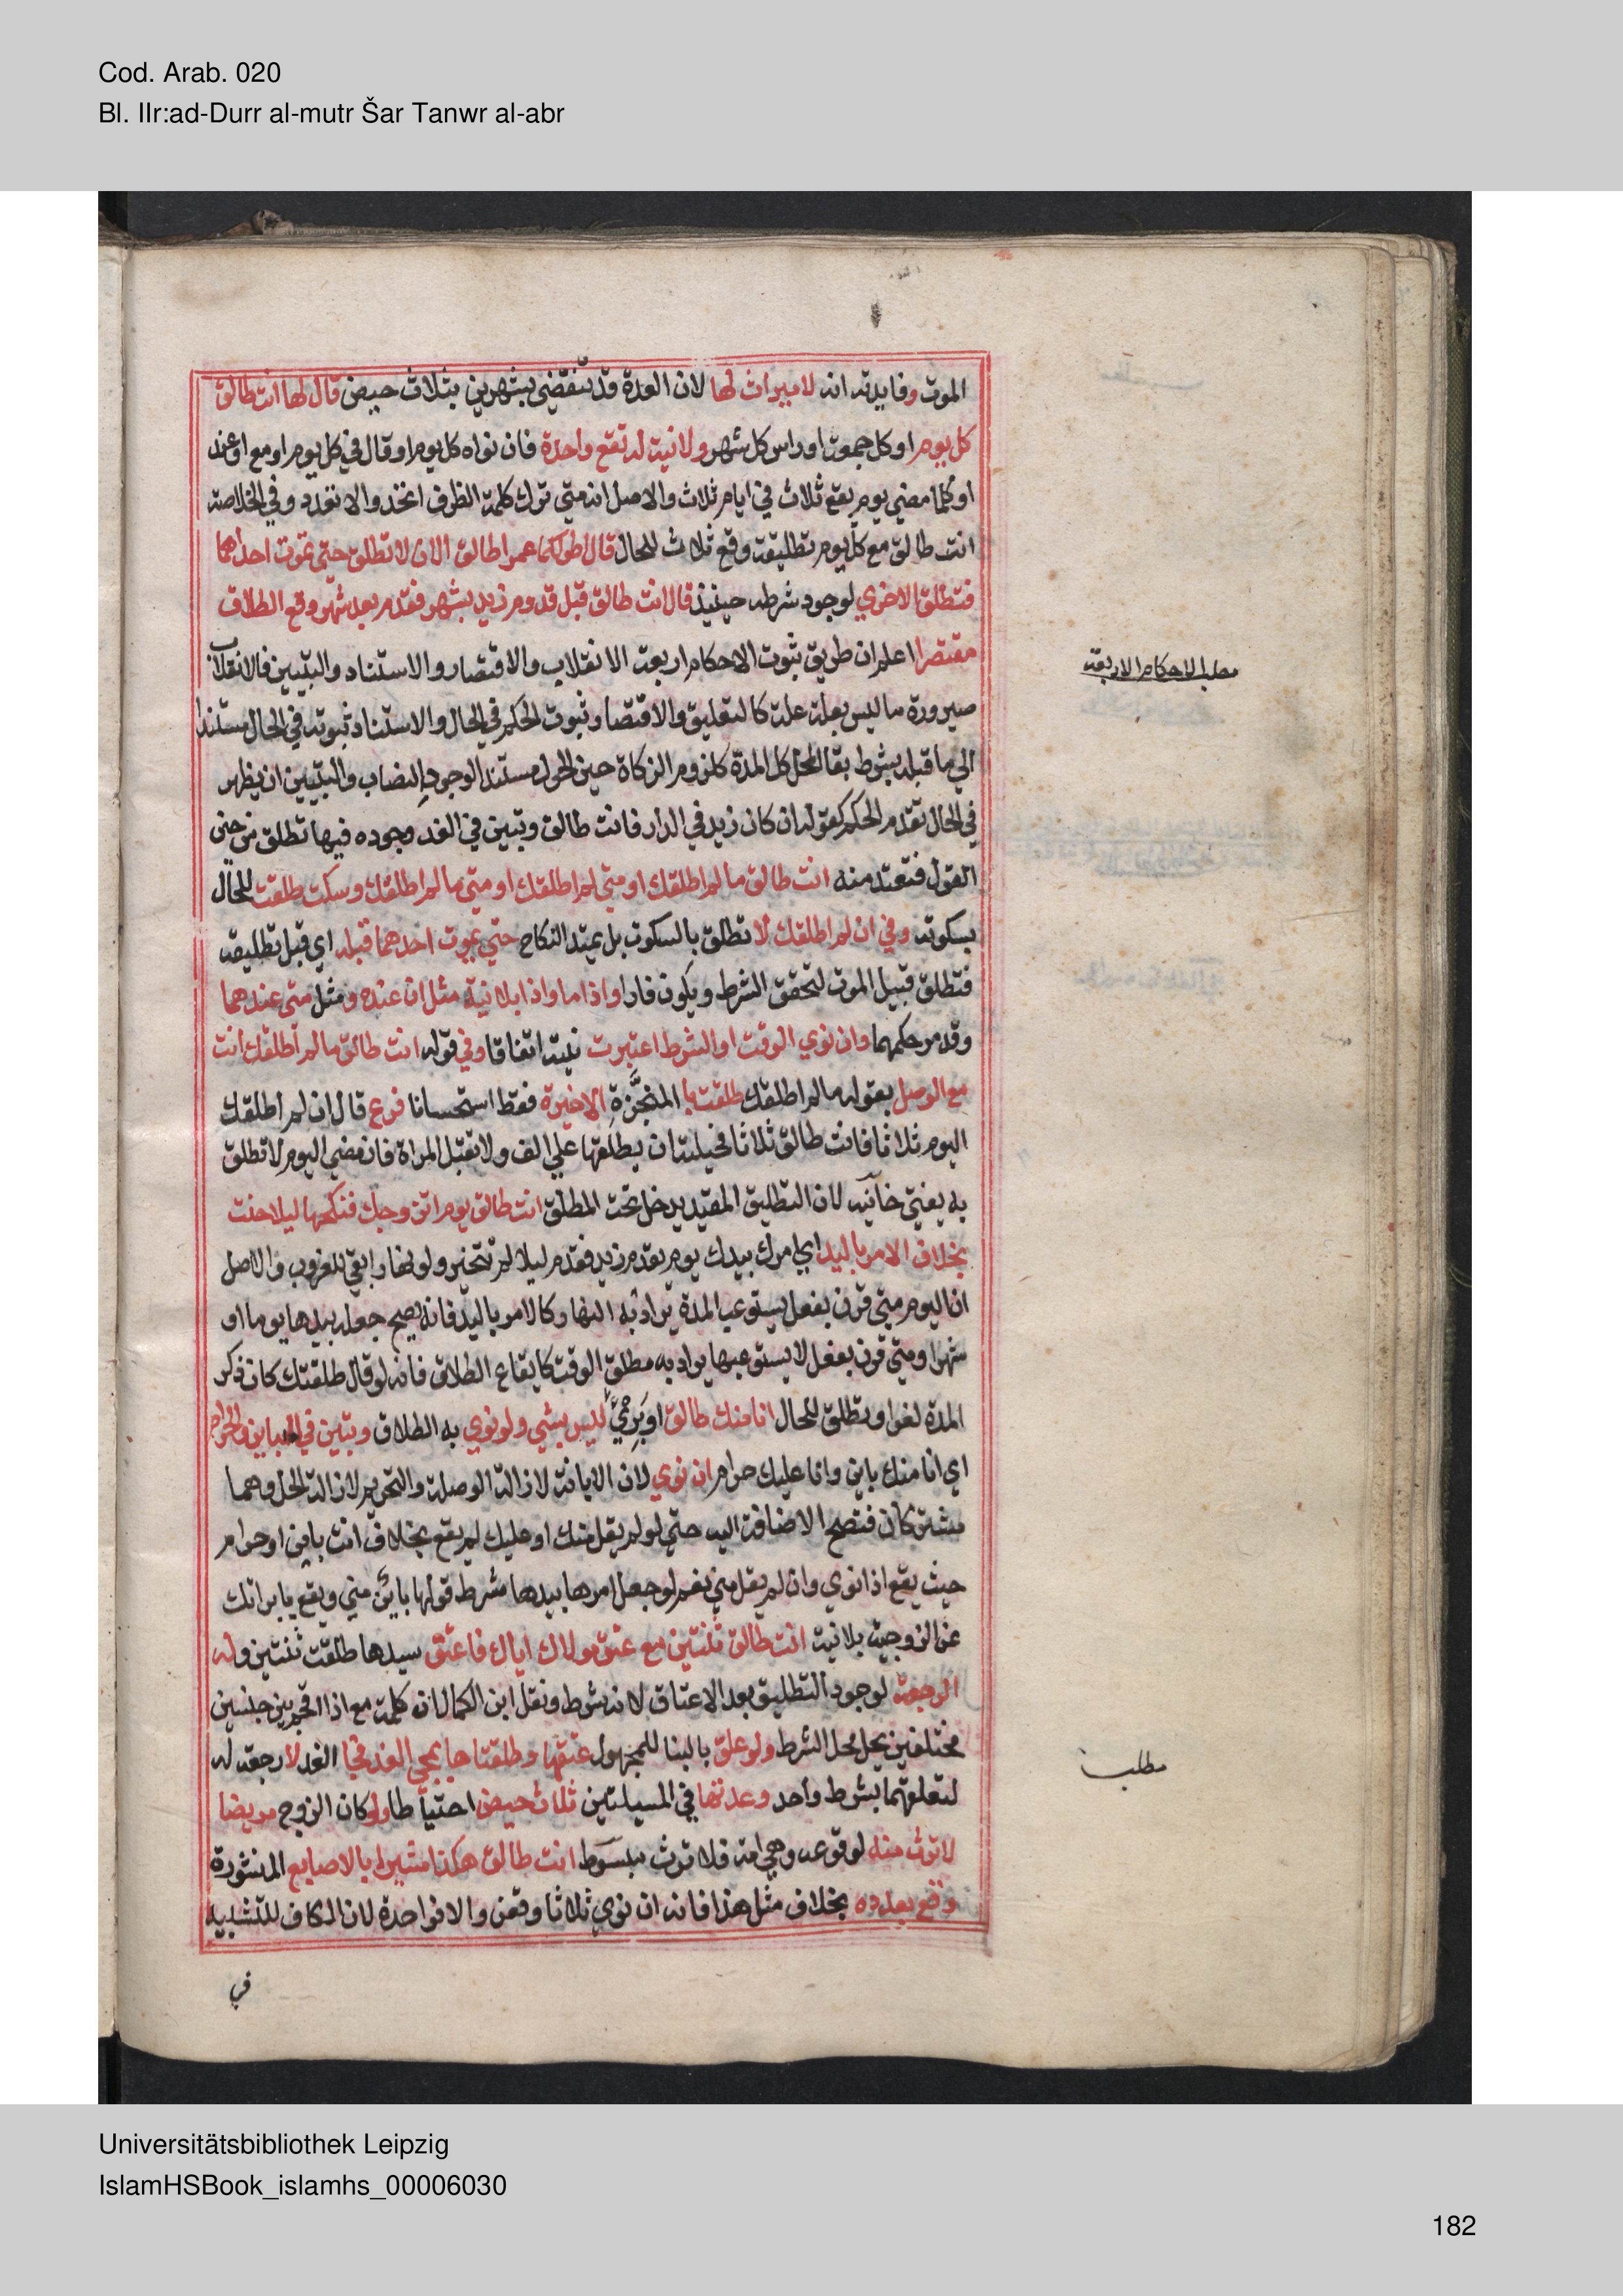 Cod. Arab. 020
Bl. IIr:ad-Durr al-mutr Šar Tanwr al-abr
الموت وفايدته انه لا ميراث لها لان العدة قد تنقضي بشهرين بثلاث حيض قال لها انت طالق
كل يوم او كل جمعة او راس كل شهر ولا نية له تقع واحدة فان نواه كل يوم او قال في كل يوم او مع او عند
او كلما مضي يوم يقع ثلاث في ايام ثلاث والاصل انه متي ترك كلمة الظرف اتحد والا تعدد وفي الخلاصة
انت طالق مع كل يوم تطليقة وقع ثلاث للحال قال اطولكما عمرا طالق الان لا تطلق حتي تموت احداهما
فتطلق الاخري لوجود شرطه حينيذ قال انت طالق قبل قدوم زيد بشهر فقدم بعد شهر وقع الطلاق
مقتصرا اعلم ان طريق ثبوت الاحكام اربعة الانقلاب والاقتصار والاستناد والتبيين فالانقلاب
صيرورة ما ليس بعلة علة كالتعليق والاقتصا وثبوت الحكم في الحال والاستناد ثبوته في الحال مستندا
الي ما قبله بشرط بقا المحل كل المدة كلزوم الزكاة حين الحول مستندا لوجود النصاب والتبيين ان يظهر
في الحال تقدم الحكم كقوله ان كان زيد في الدار فانت طالق وتبين في الغد وجوده فيها تطلق من حين
القول فتعتد منه انت طالق ما لم اطلقك او متي لم اطلقك او متي ما لم اطلقك وسكت طلقت للحال
بسكوته وفي ان لم اطلقك لا تطلق بالسكوت بل يمتد النكاح حتي يموت احدهما قبله اي قبل تطليقه
فتطلق قبيل الموت لتحقق الشرط ويكون فارا واذا ما واذا بلا نية مثل ان عنده ومثل متي عندهما
وقد مر حكمهما وان نوي الوقت او الشرط اعتبرت نيته اتفاقا وفي قوله انت طالق ما لم اطلقك انت
مع الوصل بقوله ما لم اطلقك طلقت با المنجَّزةِ الاخيرة فقط استحسانا فرع قال ان لم اطلقك
اليوم ثلاثا فانت طالق ثلاثا فحيلته ان يطلقها علي الف ولا تقبل المراة فان مضي اليوم لا تطلق
به يفتي خانيه لان التطليق المقيد يدخل تحت المطلق انت طالق يوم اتزوجك فنكحها ليلا حنث
بخلاف الامر باليد اي امرك بيدك يوم يقدم زيد فقدم ليلا لم تتخير ولو نهارا بقي للغروب والاصل
ان اليوم متي قرن بفعل يستوعب المدة يراد به النهار كالامر باليد فانه يصح جعله بيدها يوما او
شهرا ومتي قرن بفعل لا يستوعبها يراد به مطلق الوقت كايقاع الطلاق فانه لو قال طلقتك كان ذكر
المدة لغوا وتطلق للحال انا منك طالق او بَرِيٌّ ليس بشي ولو نوي به الطلاق وتبين في الباين والحرام
اي انا منك باين وانا عليك حرام ان نوي لان الابانة لازالة الوصلة والتحريم لازالة الحل وهما
مشتركان فتصح الاضافة اليه حتي لو لم يقل منك او عليك لم يقع بخلاف انت باين او حرام
حيث يقع اذا نوي وان لم يقل مني نعم لو جعل امرها بيدها شرط قولها بائن مني ويقع بابراتك
عن الزوجية بلا نية انت طالق ثنتين مع عتق مولاك اياك فاعتق سيدها طلقت ثنتين وله
الرجعة لوجود التطليق بعد الاعتاق لانه شرط ونقل ابن الكمال ان كلمة مع اذا اقحم بين جنسين
مختلفين يحل محل الشرط ولو علق بالبنا للمجهول عتقها وطلقتاها بمجي الغد فجا الغد لا رجعة له
لتعلقهما بشرط واحد وعدتها في المسيلتين ثلاث حيض احتياطا ولو كان الزوج مريضا
لا ترث منه لوقوعه وهي امة فلا ترث مبسوط انت طالق هكذا مشيرا بالاصابع المنشورة
وقع بعدده بخلاف مثل هذا فانه ان نوي ثلاثا وقعن والا فواحدة لان الكاف للتشبيه
في
مطلب الاحكام الاربعة
مطلب
Universitätsbibliothek Leipzig
IslamHSBook_islamhs_00006030
182